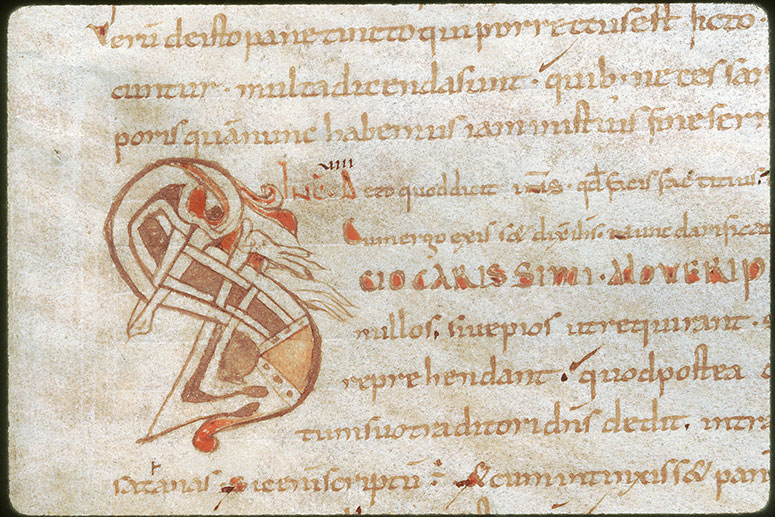 Verū de isto pane tincto qui porrectus est ficto
cuntur. multa dicenda sunt. quib; necessar
poris quā nunc habemus iam in istius fine serm
INC. Ab eo quod dicit ihs. qd facis fac citius
Cum ergo exisset dix ihs. nunc clarificat
SCIO CARISSIMI. MOVERI PO
nullos. sive pios ut requirant. s
reprehendant. quod postea
tum suo traditori dns dedit. intra
satanas. sic enī scriptū ē. & cum intinxiss& pan